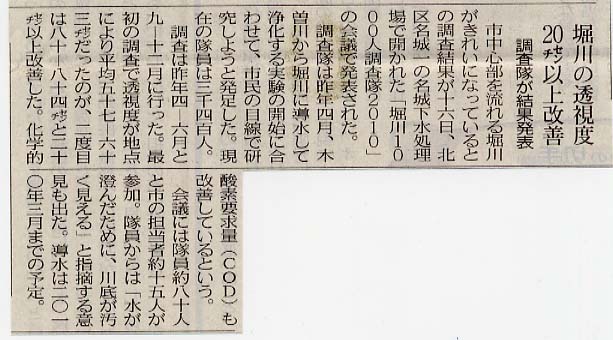 堀川の透視度
20㌢以上改善
調査隊が結果発表
市中心部を流れる堀川
がきれいになっていると
の調査結果が十六日、北
区名城一の名城下水処理
場で開かれた「堀川10
00人調査隊2010」
の会議で発表された。
調査隊は昨年四月、木
曽川から堀川に導水して
浄化する実験の開始に合
わせて、市民の目線で研
究しようと発足した。現
在の隊員は三千四百人。
調査は昨年四―六月と
九―十二月に行った。最
初の調査で透視度が地点
により平均五十七―六十
三㌢だったのが、二度目
は八十―八十四㌢と二十
㌢以上改善した。化学的
酸素要求量（COD）も
改善しているという。
会議には隊員約八十人
と市の担当者約十五人が
参加。隊員からは「水が
澄んだために、川底が汚
く見える」と指摘する意
見も出た。導水は二〇一
〇年三月までの予定。